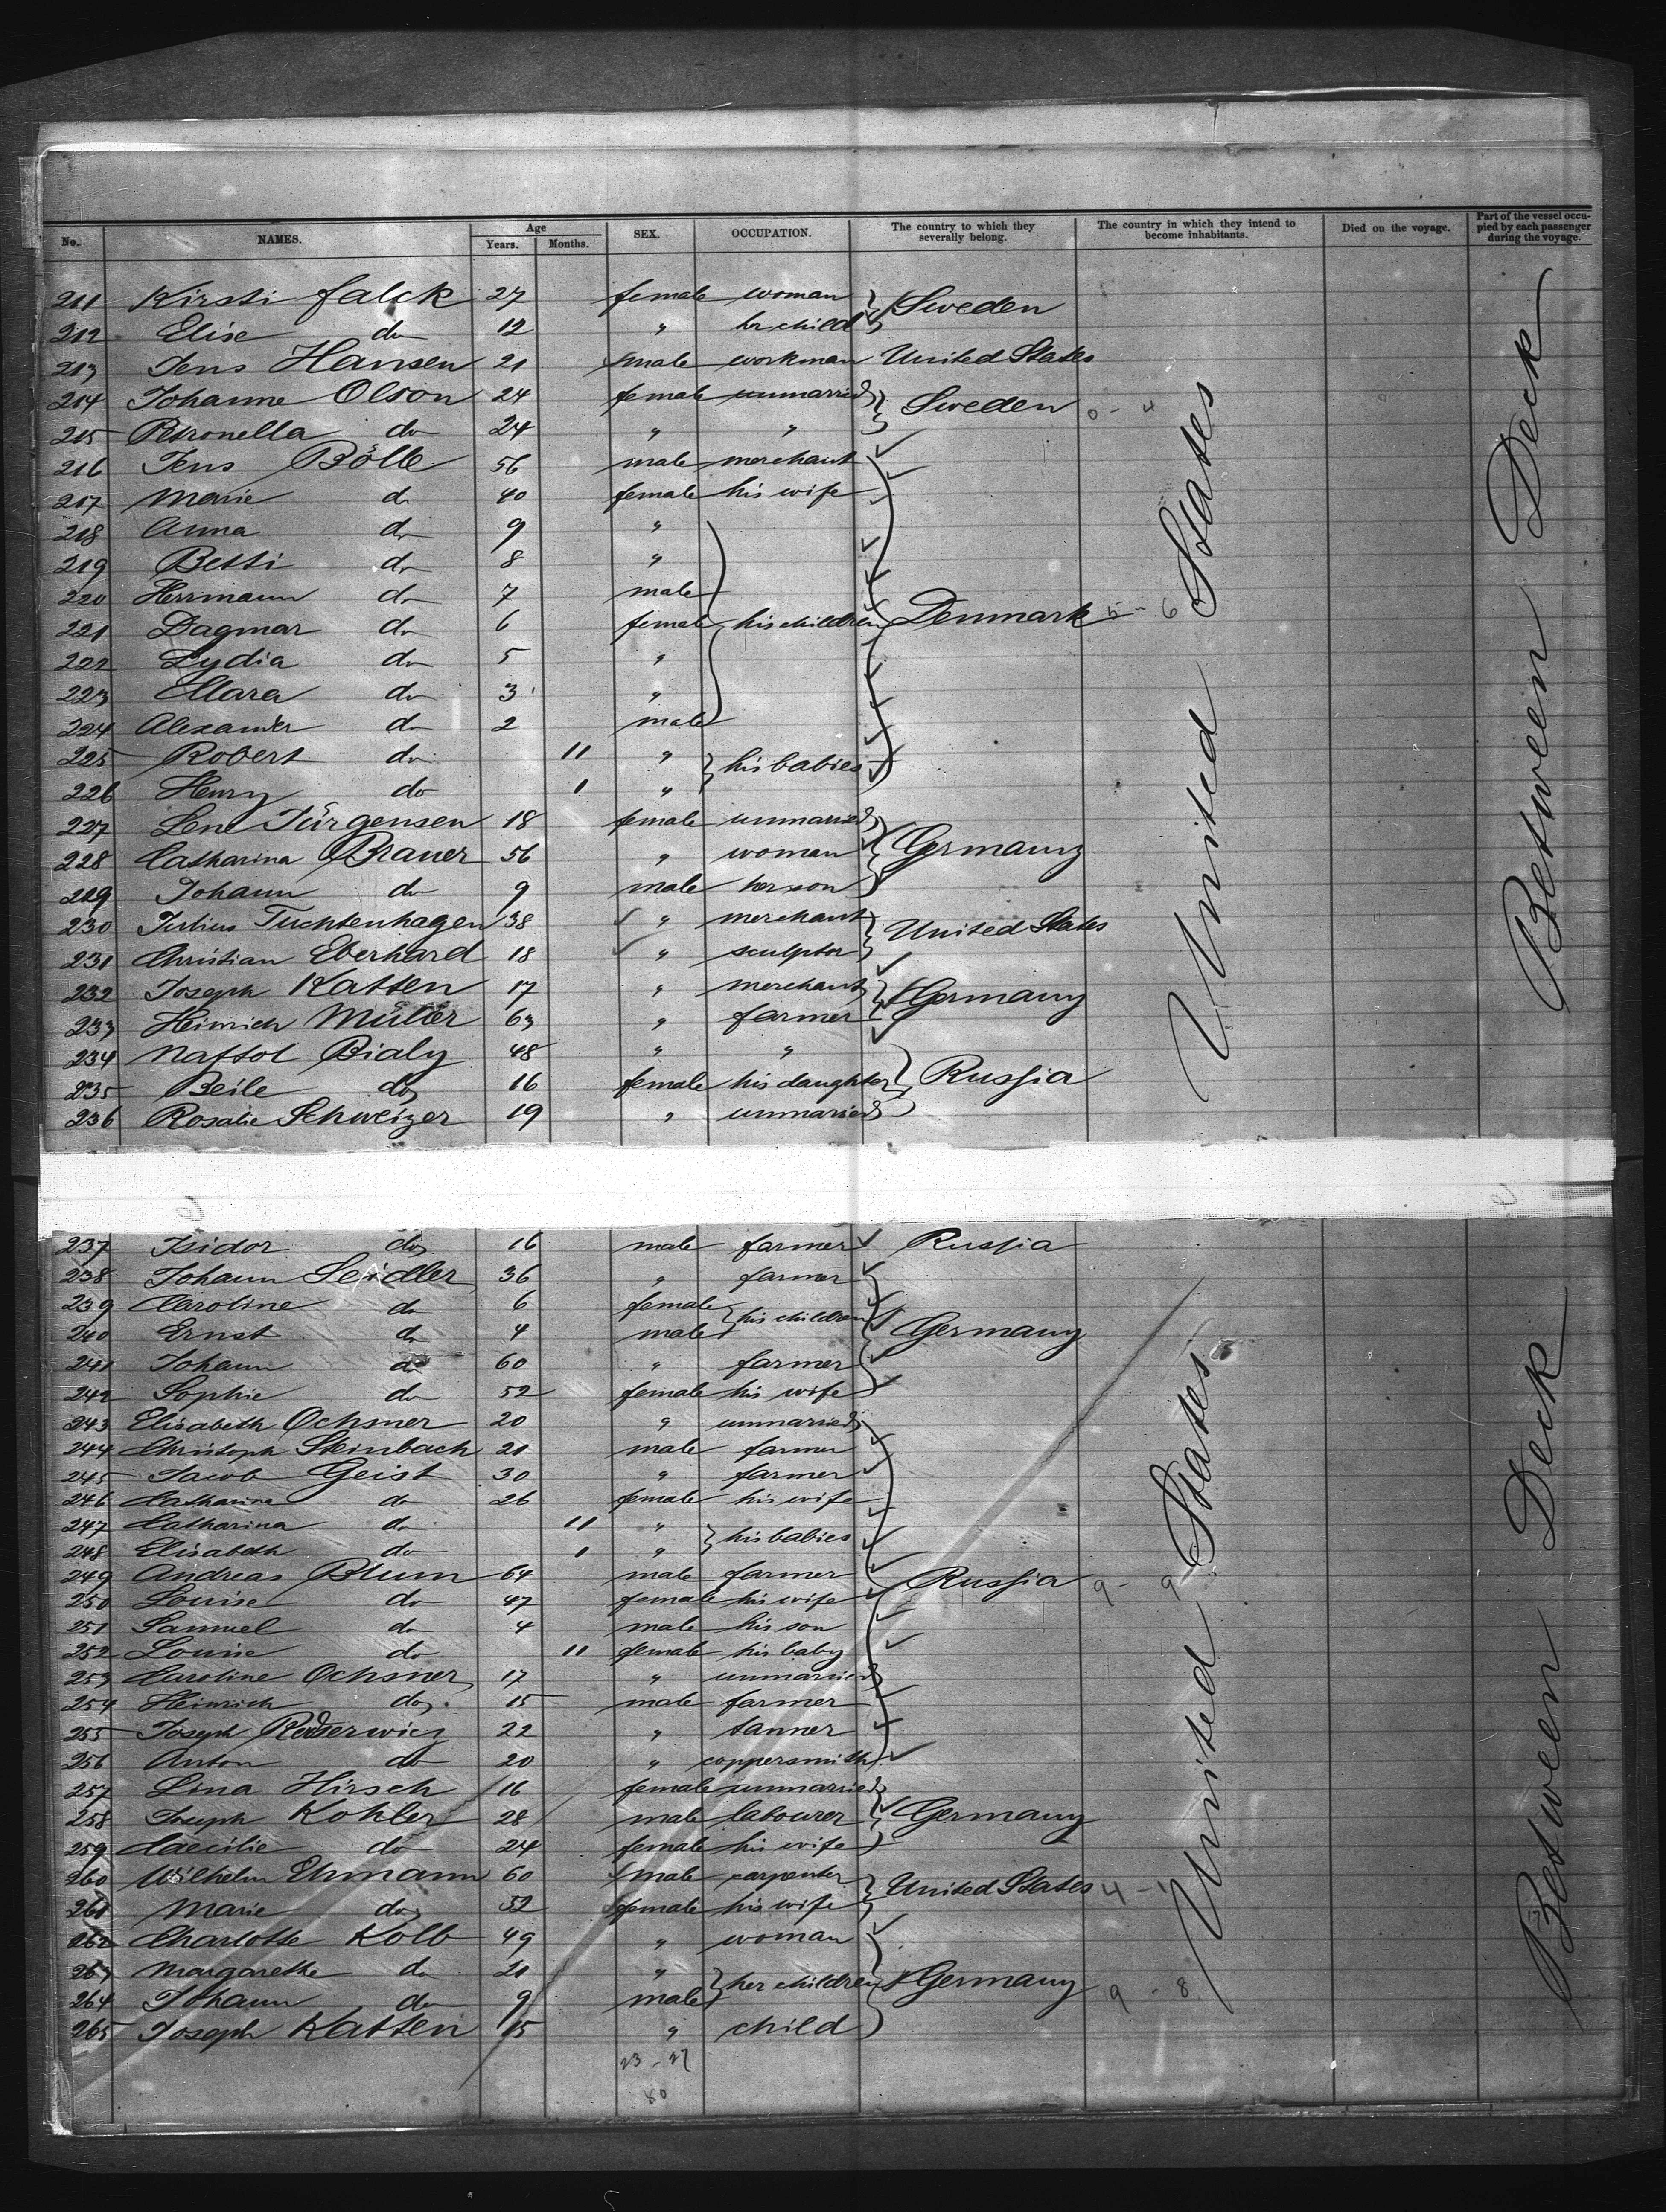 No. NAMES. Age Years. Months. SEX. OCCUPATION. The country to which they severally belong. The country in which they intend to become inhabitants. Died on the voyage. Part of the vessel occupied by each passenger during the voyage.
211 Kirsti Falck 27 female woman Sweden
212 Elise do 12 " her child
213 Jens Hansen 21 male workman United States
214 Johanne Olson 24 female unmarried Sweden 0 - 4
215 Petronella do 24 " "
216 Jens Bölle 56 male merchant
217 Marie do 40 female his wife
218 Anna do 9 "
219 Betti do 8 "
220 Herrmann do 7 male
221 Dagmar do 6 female his children Denmark 5 - 6
222 Lydia do 5 "
223 Clara do 3 "
224 Alexander do 2 male
225 Robert do 11 " his babies
226 Henry do 1 "
227 Lene Jürgensen 18 female unmarried
228 Catharina Brauer 56 " woman Germany
229 Johann do 9 male her son
230 Julius Tuchtenhagen 38 " merchant United States
231 Christian Eberhard 18 " sculptor
232 Joseph Katten 17 " merchant Germany
233 Heinrich Müller 63 " farmer
234 Naftol Bialy 48 " "
235 Beile do 16 female his daughter Russia
236 Rosalie Schweizer 19 " unmarried
United States
Between Deck
237 Isidor do 16 male farmer Russia
238 Johann Seidler 36 " farmer
239 Caroline do 6 female his children
240 Ernst do 4 male Germany
241 Johann do 60 " farmer
242 Sophie do 52 female his wife
243 Elisabeth Ochsner 20 " unmarried
244 Christoph Steinbach 21 male farmer
245 Jacob Geist 30 " farmer
246 Catharina do 26 female his wife
247 Catharina do 11 " his babies
248 Elisabeth do 1 "
249 Andreas Blum 64 male farmer Russia 9 - 9
250 Louise do 47 female his wife
251 Samuel do 4 male his son
252 Louise do 11 female his baby
253 Caroline Ochsner 17 " unmarried
254 Heinrich do 15 male farmer
255 Joseph 22 " tanner
256 Anton do 20 " coppersmith
257 Lina Hirsch 16 female unmarried
258 Joseph Kohler 28 male labourer Germany
259 Caecilie do 24 female his wife
260 Wilhelm Ehmann 60 male carpenter United States 4 - 1
261 Marie do 52 female his wife
262 Charlotte Kolb 49 " woman
263 Margarethe do 21 " her children Germany 9 - 8
264 Johann do 9 male
265 Joseph Katten 15 " child
United States
Between Deck
23 - 27
80